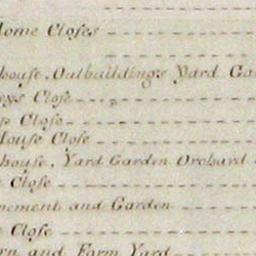 Home Closes
house, Outbuildings Yard Ga
Close
Close
House Close
house, Yard Garden Orchard
Close
nement and Garden
Close
rn and Farm Yard